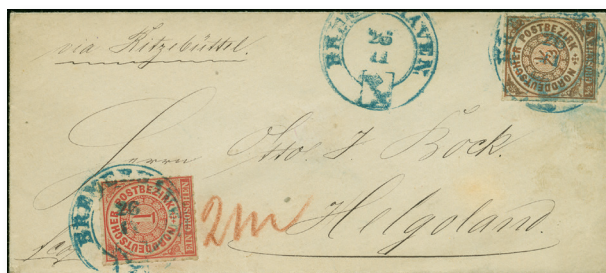 via Ritzebüttel.
BREMERHAVEN
26
11
NORDDEUTSCHER POSTBEZIRK
Herrn Otto J. Bock.
BREMERHAVEN
26
NORDDEUTSCHER POSTBEZIRK
1
Helgoland.